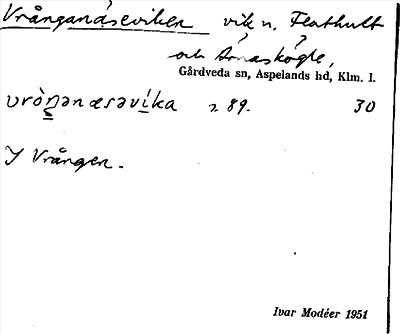 Vrånganäseviken vik n. Flathult
och Årnaskögle,
Gårdveda sn, Aspelands hd, Klm. l.
s. 89. 30
I Vrången.
Ivar Modéer 1951